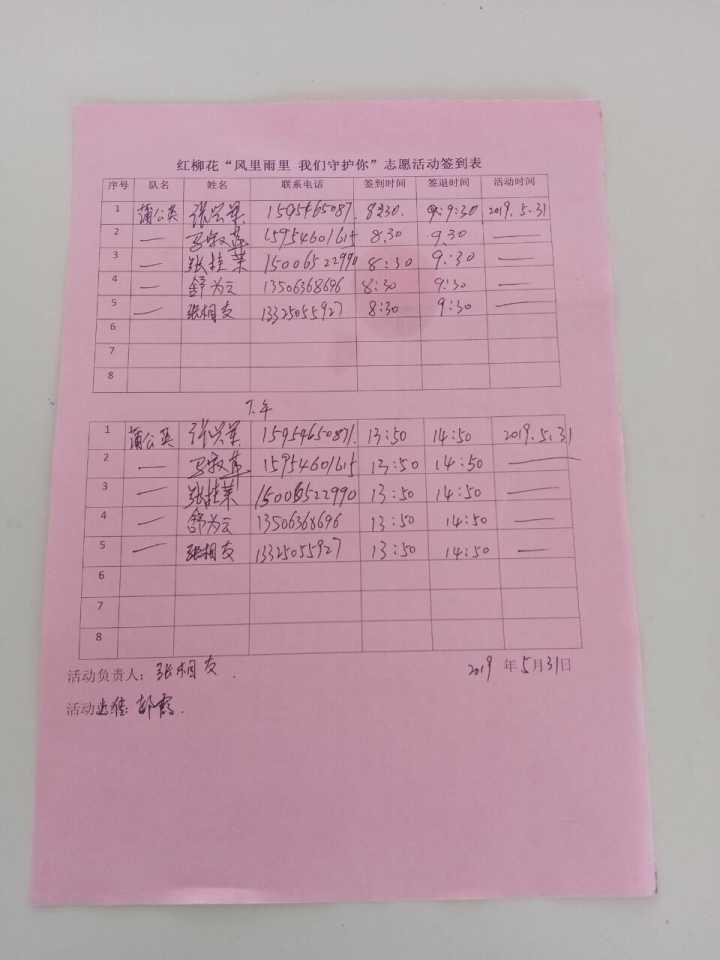 红柳花“风里雨里 我们守护你”志愿活动签到表
序号 队名 姓名 联系电话 签到时间 签退时间 活动时间
1 蒲公英 张兴菜 8:30. 9:30 2019.5.31
2 — 马敏萍 15954601615 8.30 9.30 —
3 — 张桂荣 15006522990 8:30 9:30 —
4 — 舒为云 13506368696 8:30 9:30 —
5 — 张相友 13325055927 8:30 9:30 —
6
7
8
下午
1 蒲公英 15954650871. 13:50 14:50 2019.5.31
2 — 15954601615 13:50 14:50 —
3 — 张桂荣 15006522990 13:50 14:50 —
4 — 舒为云 13506368696 13:50 14:50 —
5 — 张相友 13325055927 13:50 14:50 —
6
7
8
活动负责人：张相友. 2019年5月31日
活动